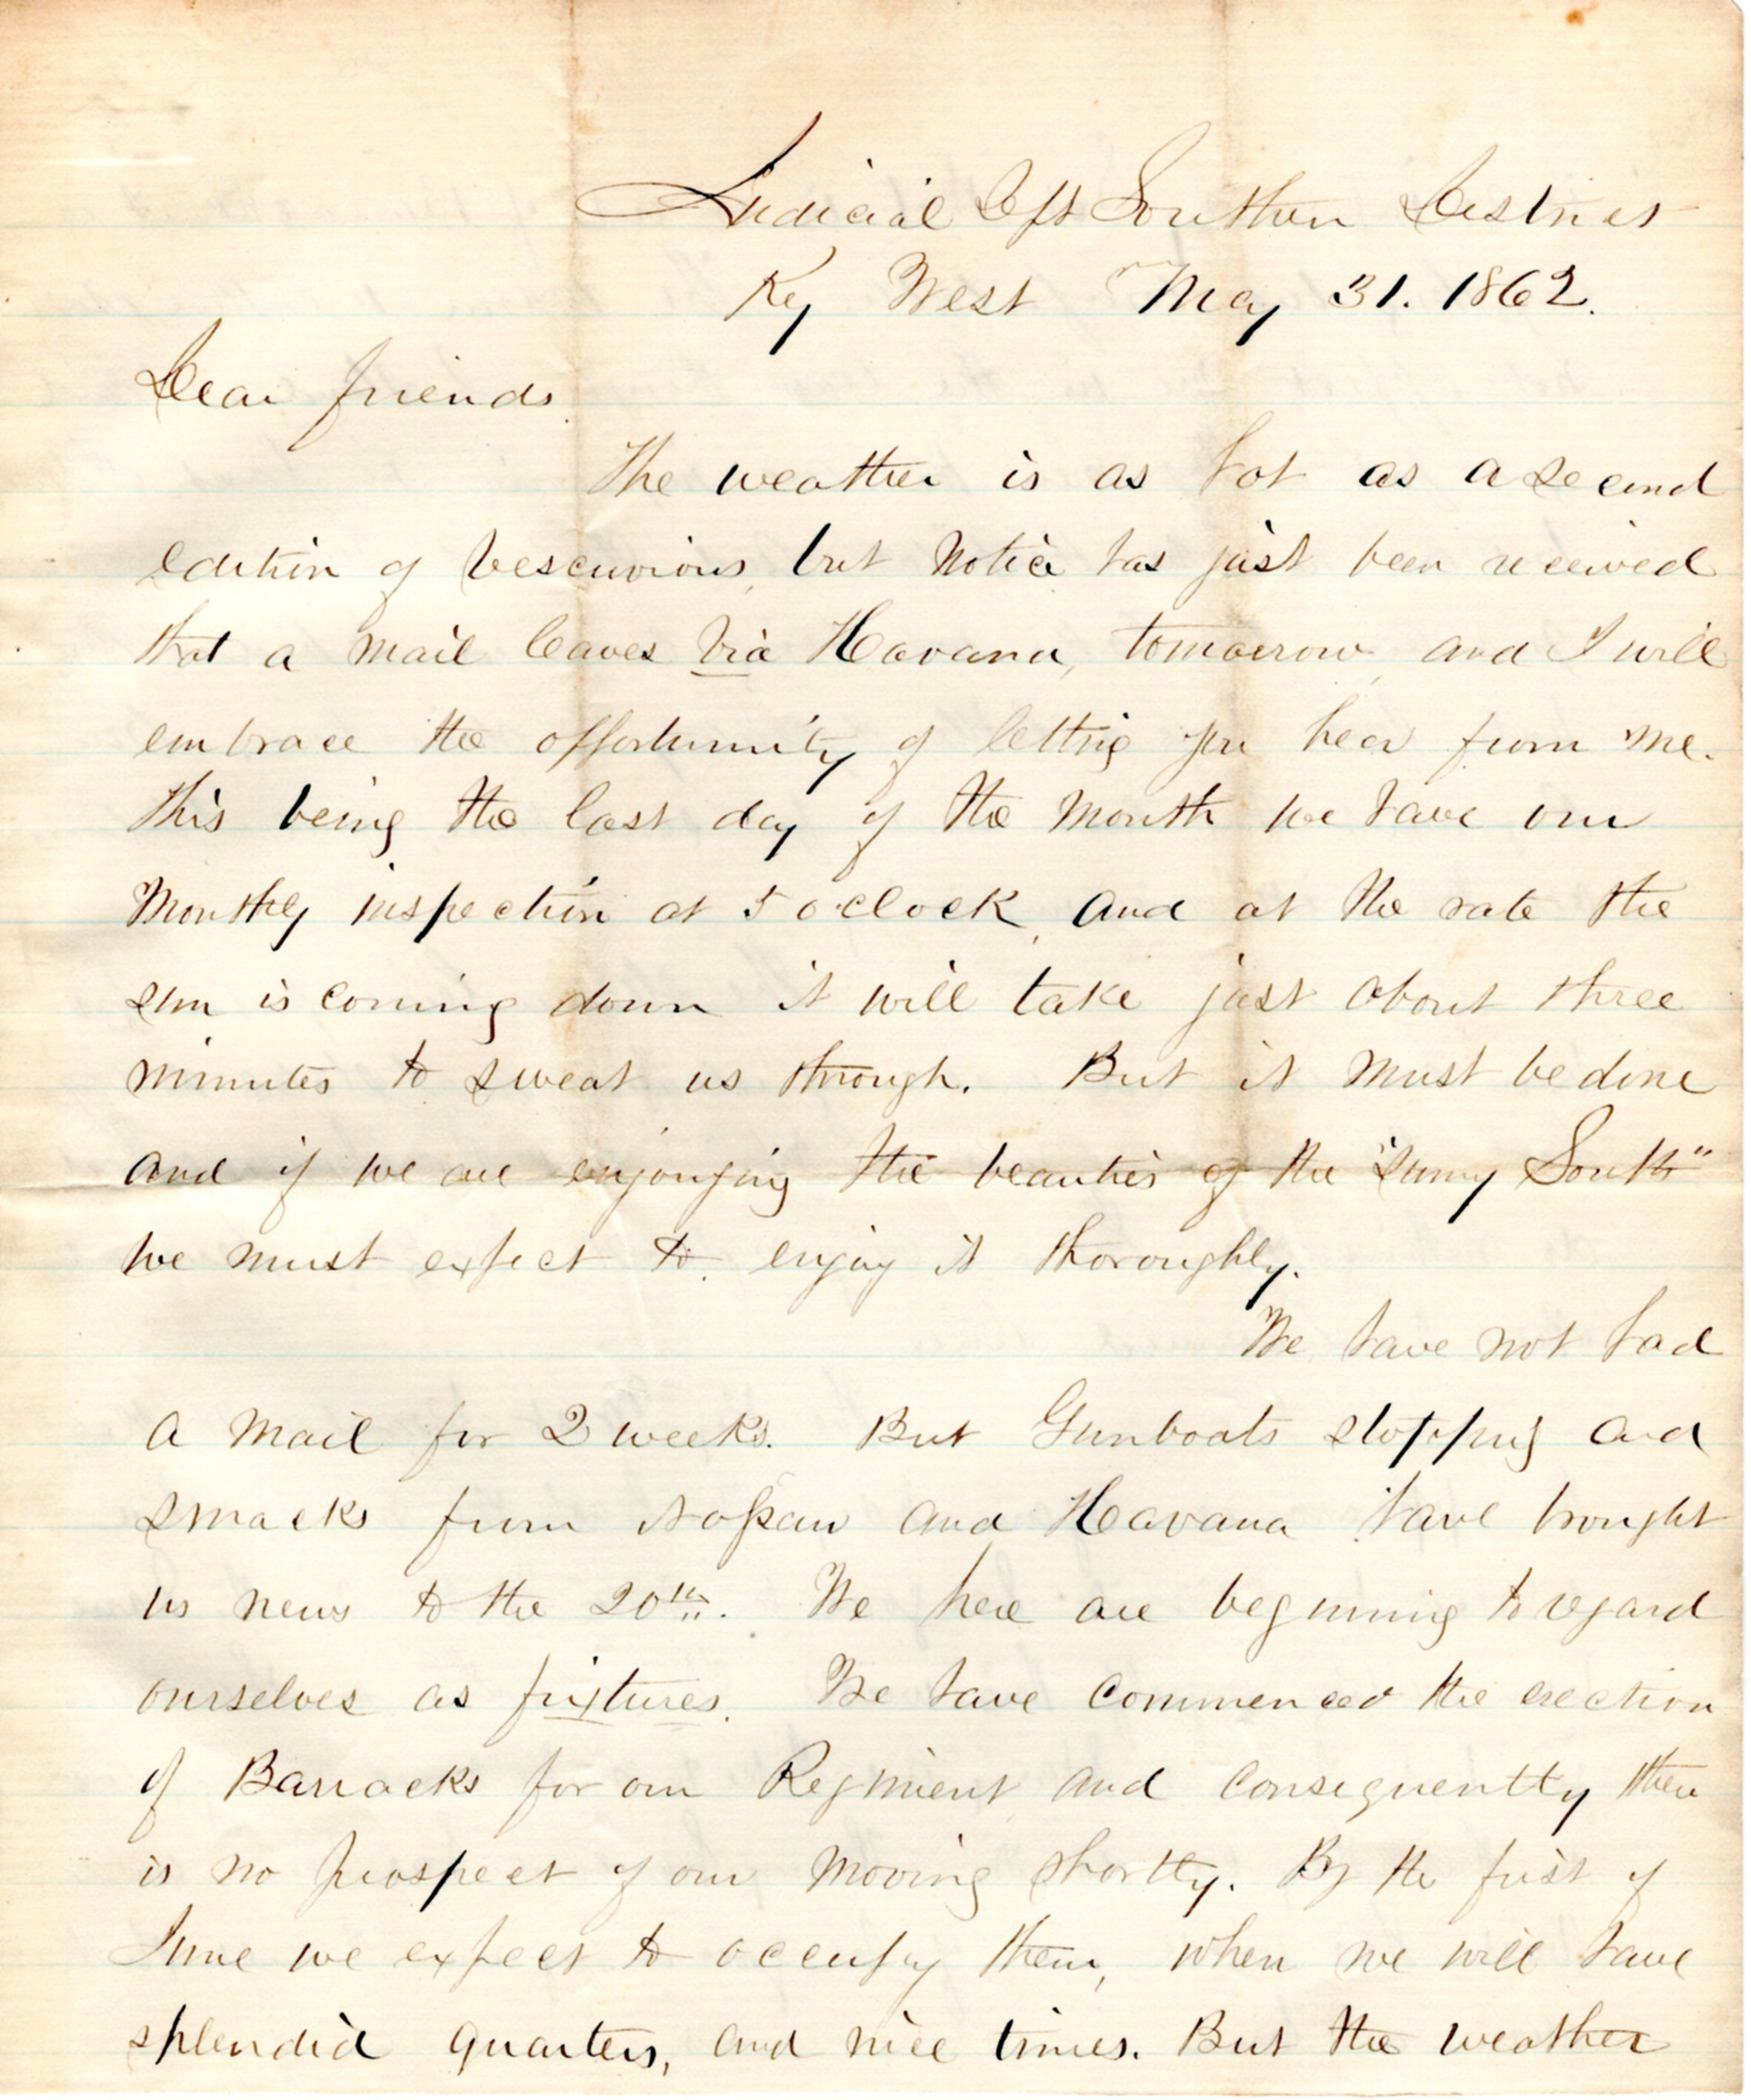 Judicial Dept Southern District
Key West May 31. 1862.
Dear friends.
The weather is as hot as a second
edition of Vescuvious, but notice has just been received
that a mail leaves via Havana, tomorrow, and I will
embrace the opportunity of letting you hear from me.
This being the last day of the month we have our
Monthly inspection at 5 o'clock, and at the rate the
sun is coming down it will take just about three
minutes to sweat us through. But it must be done
and if we are enjoying the beauties of the "Sunny South"
we must expect to enjoy it thoroughly.
We have not had
a mail for 2 weeks. But Gunboats stopping and
smacks from Nassau and Havana have brought
us news to the 20th. We here are beginning to regard
ourselves as fixtures. We have commenced the erection
of Barracks for our Regiment and consequently there
is no prospect of our moving shortly. By the first of
June we expect to occupy them, when we will have
splendid quarters, and nice times. But the weather